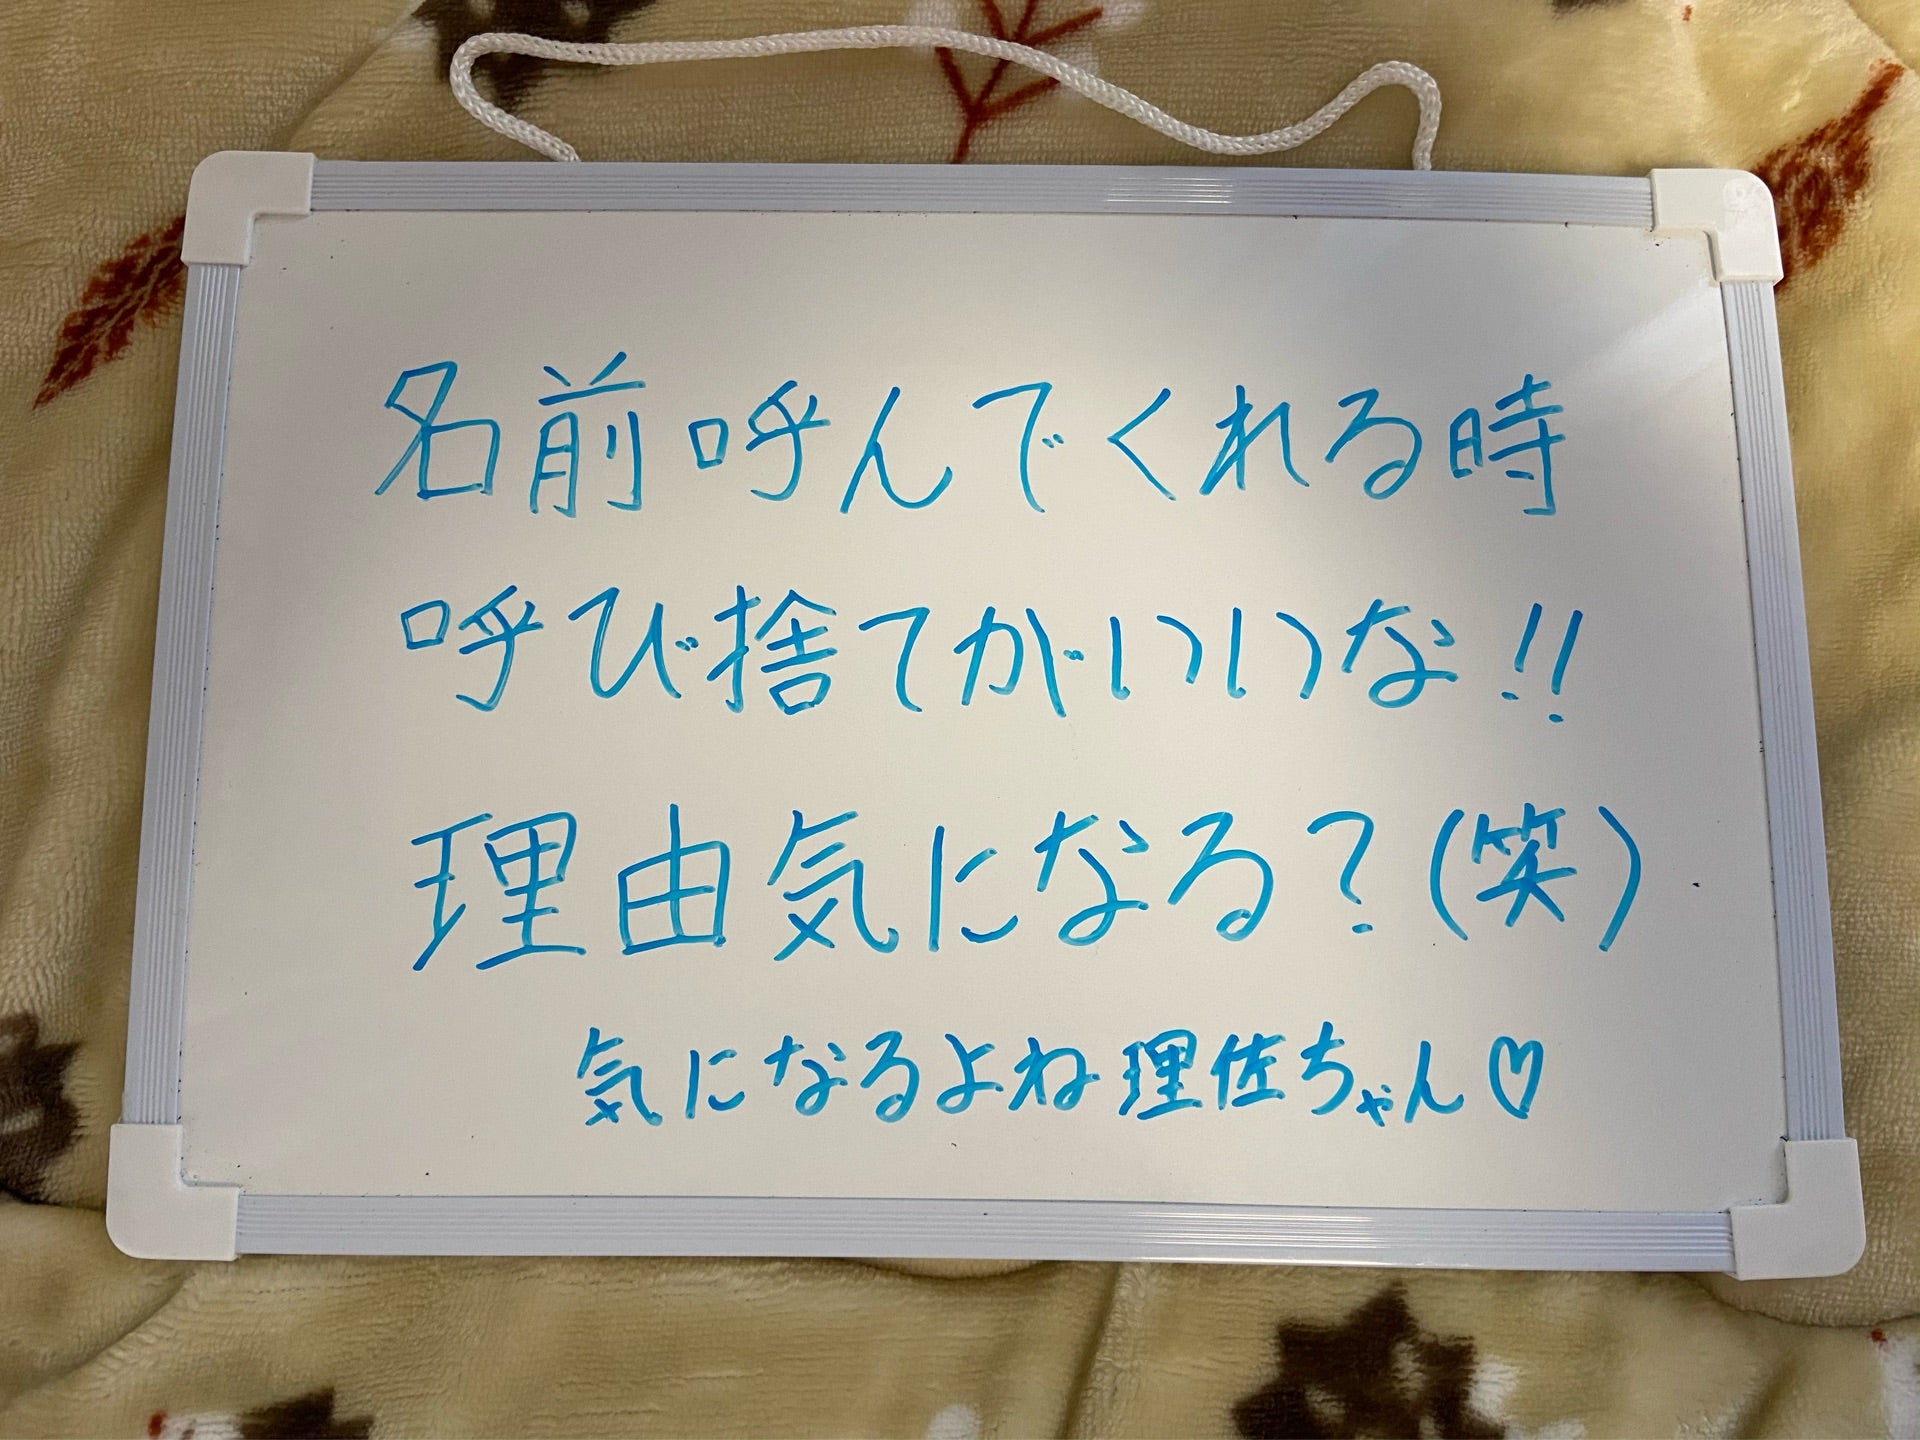 名前呼んでくれる時
呼び捨てがいいな!!
理由気になる?(笑)
気になるよね理佐ちゃん♡